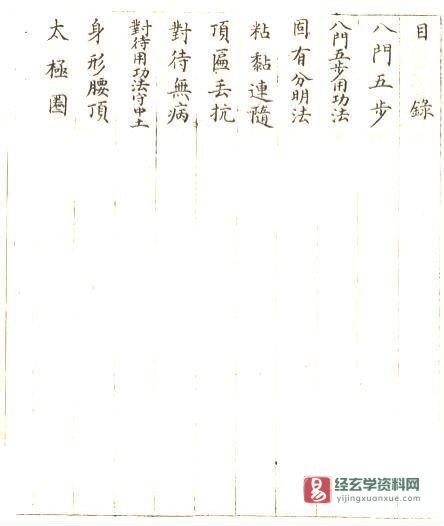 目錄
八門五步
八門五步用功法
固有分明法
粘黏連隨
頂匾丟抗
對待無病
對待用功法守中土
身形腰頂
太極圈
易
经玄学资料网
yijingxuanxue.com